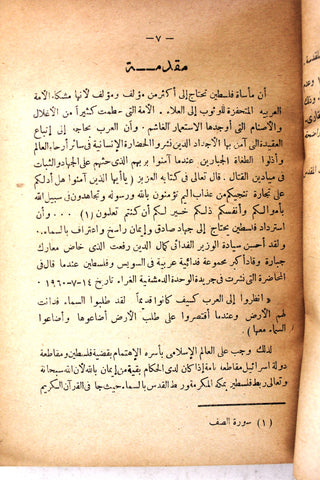 — ٧ —
مقدمـــة
أن مأساة فلسطين تحتاج إلى أكثر من مؤلف ومؤلف لأنها مشكلة الأمة
العربية المتحفزة للوثوب إلى العلاء . الأمة التى حطمت كثيراً من الأغلال
والأصنام التى أوجدها الاستعمار الغاشم . وأن العرب بحاجة إلى إتباع
العقيدة إلى آمن بها الأجداد الذين نشروا الحضارة والإنسانية فى سائر أرجاء العالم
وأذلوا الطغاة الجبارين عندما آمنوا بربهم الذى حثهم على الجهاد والثبات
فى ميادين القتال . فقال تعالى فى كتابه العزيز (ياأيها الذين آمنوا هل أدلكم
على تجارة تنجيكم من عذاب اليم تؤمنون بالله ورسوله وتجاهدون فى سبيل الله
بأموالكم وأنفسكم ذلكم خير لكم أن كنتم تعلمون ) (١) . . . وأن
استرداد فلسطين تحتاج إلى جهاد صادق وإيمان راسخ واعتراف بالسماء .
ولقد أحسن سيادة الوزير الفدائى كمال الدين رفعت الذى خاض معارك
جبارة وقاد أكبر مجموعة فدائية عربية فى السويس وفلسطين عندما قال فى
المحاضرة التى نشرت فى جريدة الوحدة الدمشقية الغراء . تاريخ ١٤-٧-١٩٦٠
« انظروا إلى العرب كيف كانوا قديماً لقد طلبوا السماء فدانت
لهم الأرض وعندما أقتصروا على طلب الأرض أضاعوها وأضاعوا
السماء معها ) .
لذلك وجب على العالم الإسلامى بأسره الإهتمام بقضية فلسطين ومقاطعة
دولة اسرائيل مقاطعة تامة إذا كان لدى الحكام بقية من إيمان بالله لأن الله سبحانه
وتعالى ربط فلسطين بمكة المكرمة فور ط القدس بالسماء حيث جا فى القرآن الكريم
(١) سورة الصف